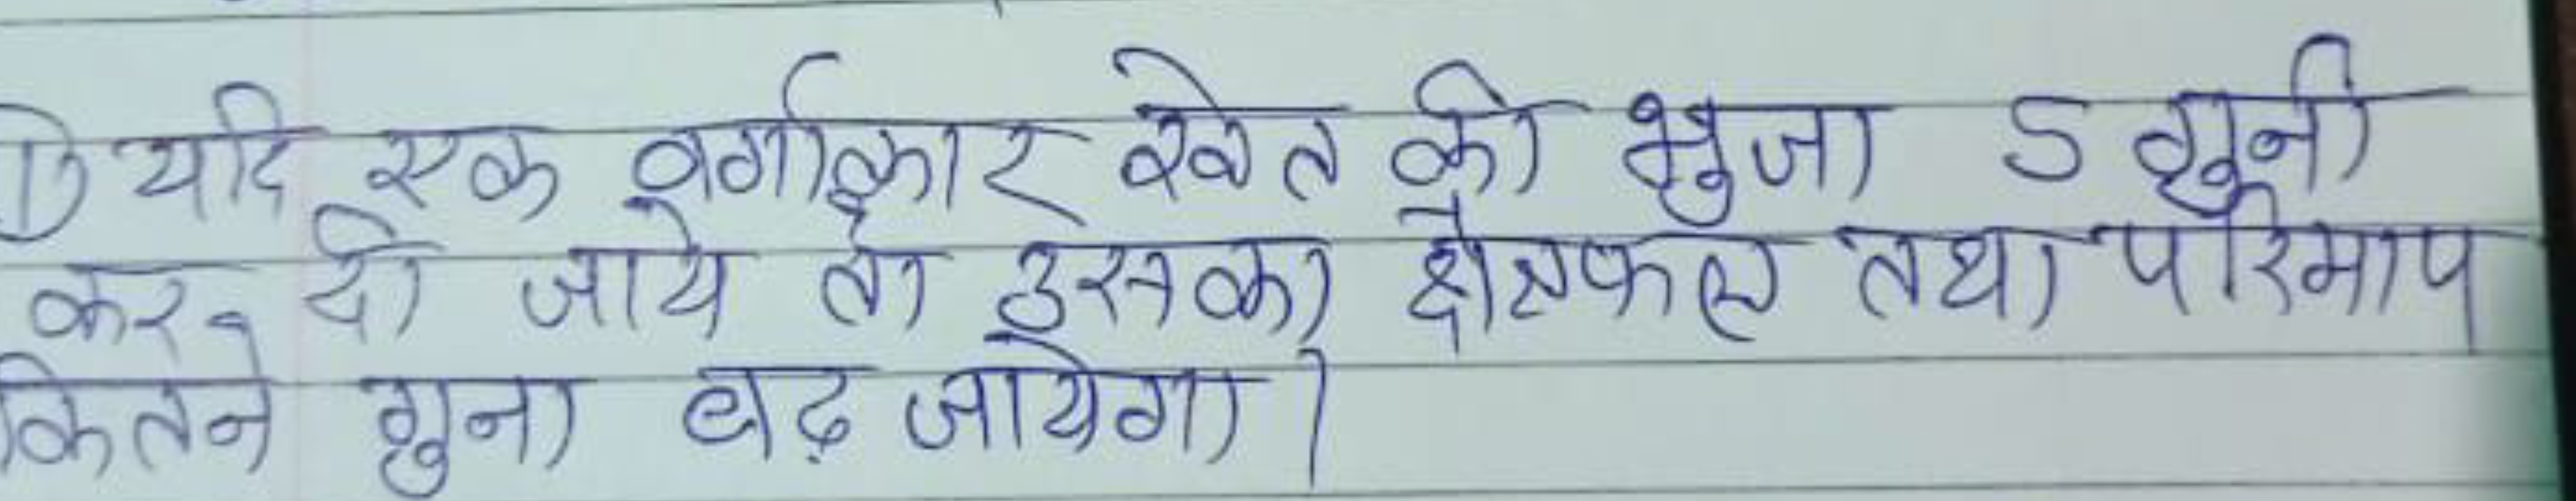 ① यदि एक वर्गाकार खेत की भुजा 5 गुनी
कर दी जाये तो उसका क्षेत्रफल तथा परिमाप
कितने गुना बढ़ जायेगा।